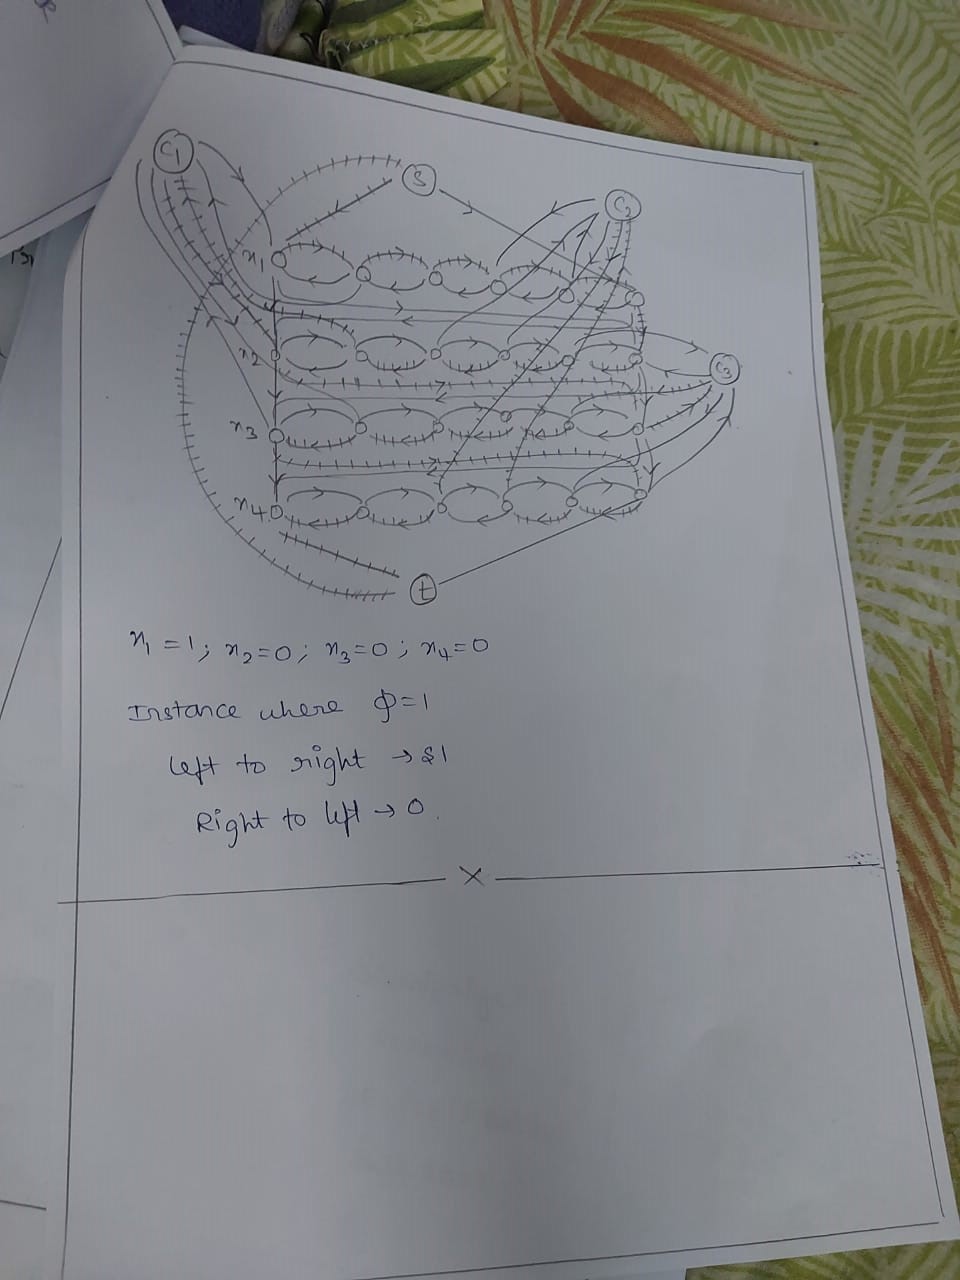 C1
S
C2
x1
x2
C3
x3
x4
t
x1 = 1; x2=0; x3=0; x4=0
Instance where φ=1
Left to right → 1
Right to left → 0.
X